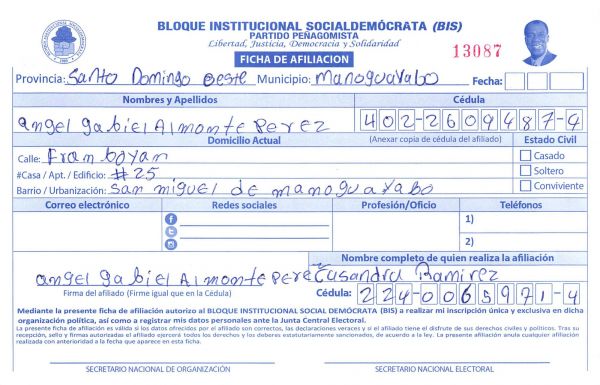 BLOQUE INSTITUCIONAL SOCIALDEMÓCRATA (BIS)
PARTIDO PEÑAGOMISTA
Libertad, Justicia, Democracia y Solidaridad
FICHA DE AFILIACION
13087
Provincia: Santo Domingo oeste Municipio: manoguayabo Fecha:
Nombres y Apellidos Cédula
angel gabiel Almonte Perez 402-2609487-9
Domicilio Actual (Anexar copia de cédula del afiliado) Estado Civil
Calle: Framboyan Casado
#Casa / Apt. / Edificio: #25 Soltero
Barrio / Urbanización: san miguel de manoguayabo Conviviente
Correo electrónico Redes sociales Profesión/Oficio Teléfonos
1)
2)
Nombre completo de quien realiza la afiliación
angel gabiel Almonte Perez Casandra Ramirez
Firma del afiliado (Firme igual que en la Cédula) Cédula: 224-0065971-4
Mediante la presente ficha de afiliación autorizo al BLOQUE INSTITUCIONAL SOCIAL DEMÓCRATA (BIS) a realizar mi inscripción única y exclusiva en dicha
organización política, así como a registrar mis datos personales ante la Junta Central Electoral.
La presente ficha de afiliación es válida si los datos ofrecidos por el afiliado son correctos, las declaraciones veraces y si el afiliado tiene el disfrute de sus derechos civiles y políticos. Tras su
recepción, sello y firmas autorizadas el afiliado ejercerá todos los derechos y los deberes estatutariamente sancionados, de acuerdo a la ley. La presente afiliación anula cualquier afiliación
realizada con anterioridad a la fecha que aparece en esta ficha.
SECRETARIO NACIONAL DE ORGANIZACIÓN SECRETARIO NACIONAL ELECTORAL